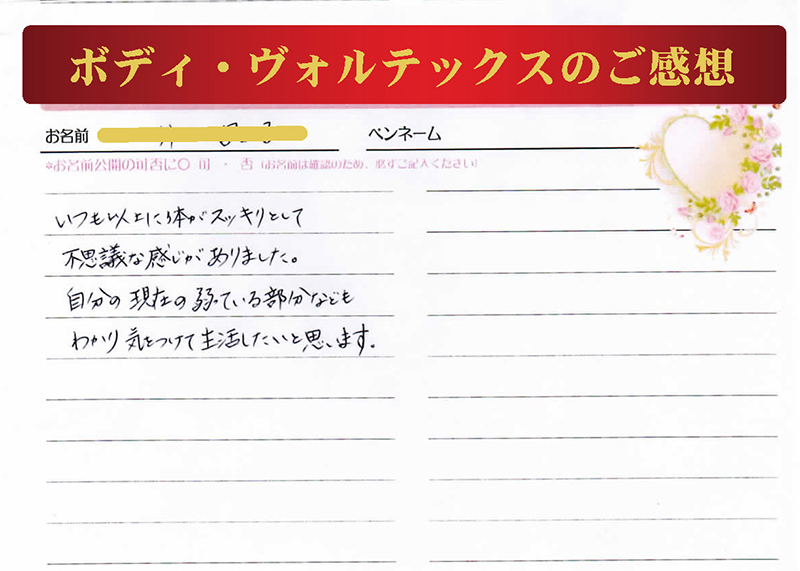 ボディ・ヴォルテックスのご感想
お名前
ペンネーム
*お名前公開の可否に〇 可 ・ 否 (お名前は確認のため、必ずご記入ください)
いつも以上に体がスッキリとして
不思議な感じがありました。
自分の現在の弱っている部分なども
わかり気をつけて生活したいと思います。